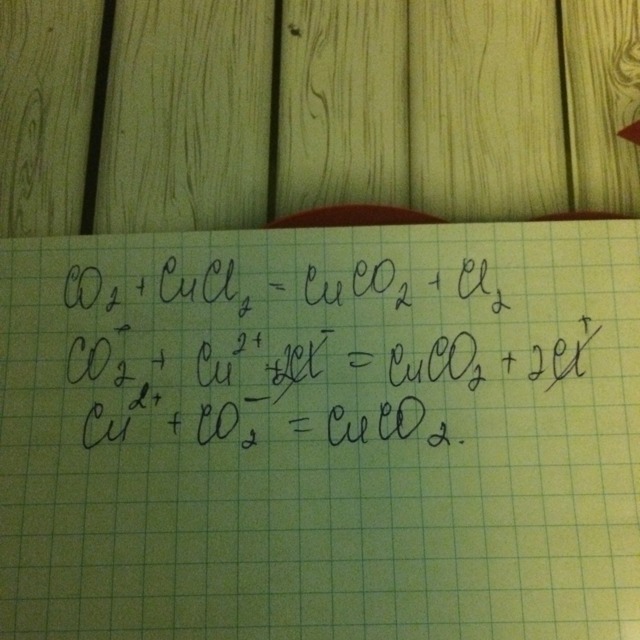 CO₂ + CuCl₂ = CuCO₂ + Cl₂
CO₂⁻ + Cu²⁺ + 2Cl⁻ = CuCO₂ + 2Cl⁺
Cu²⁺ + CO₂⁻ = CuCO₂.